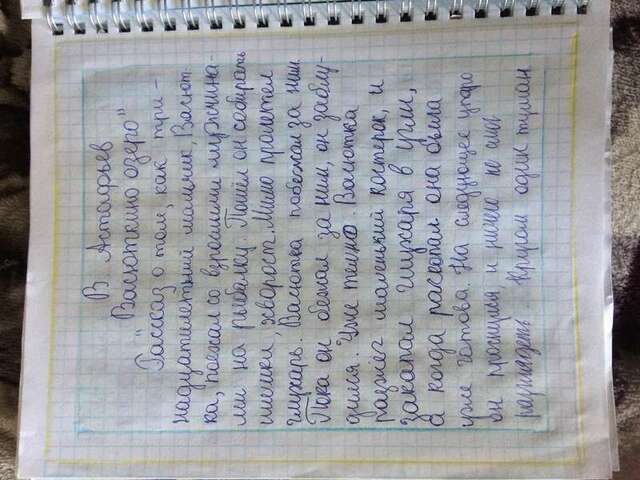 В Астафьев
"Васюткино озеро"
Рассказ о том, как три-
надцатилетний мальчик, Васют-
ка, поехал со взрослыми мужчина-
ми на рыбалку. Пошёл он собирать
шишки, хворост. Мимо пролетел
глухарь. Васютка побежал за ним.
Пока он бежал за ним, он заблу-
дился. Уже темно. Васютка
разжёг маленький костерок, и
закапал глухаря в угли,
а когда раскопал она была
уже готова. На следующее утро
он проснулся, и ничего не смог
разглядеть. Кругом один туман